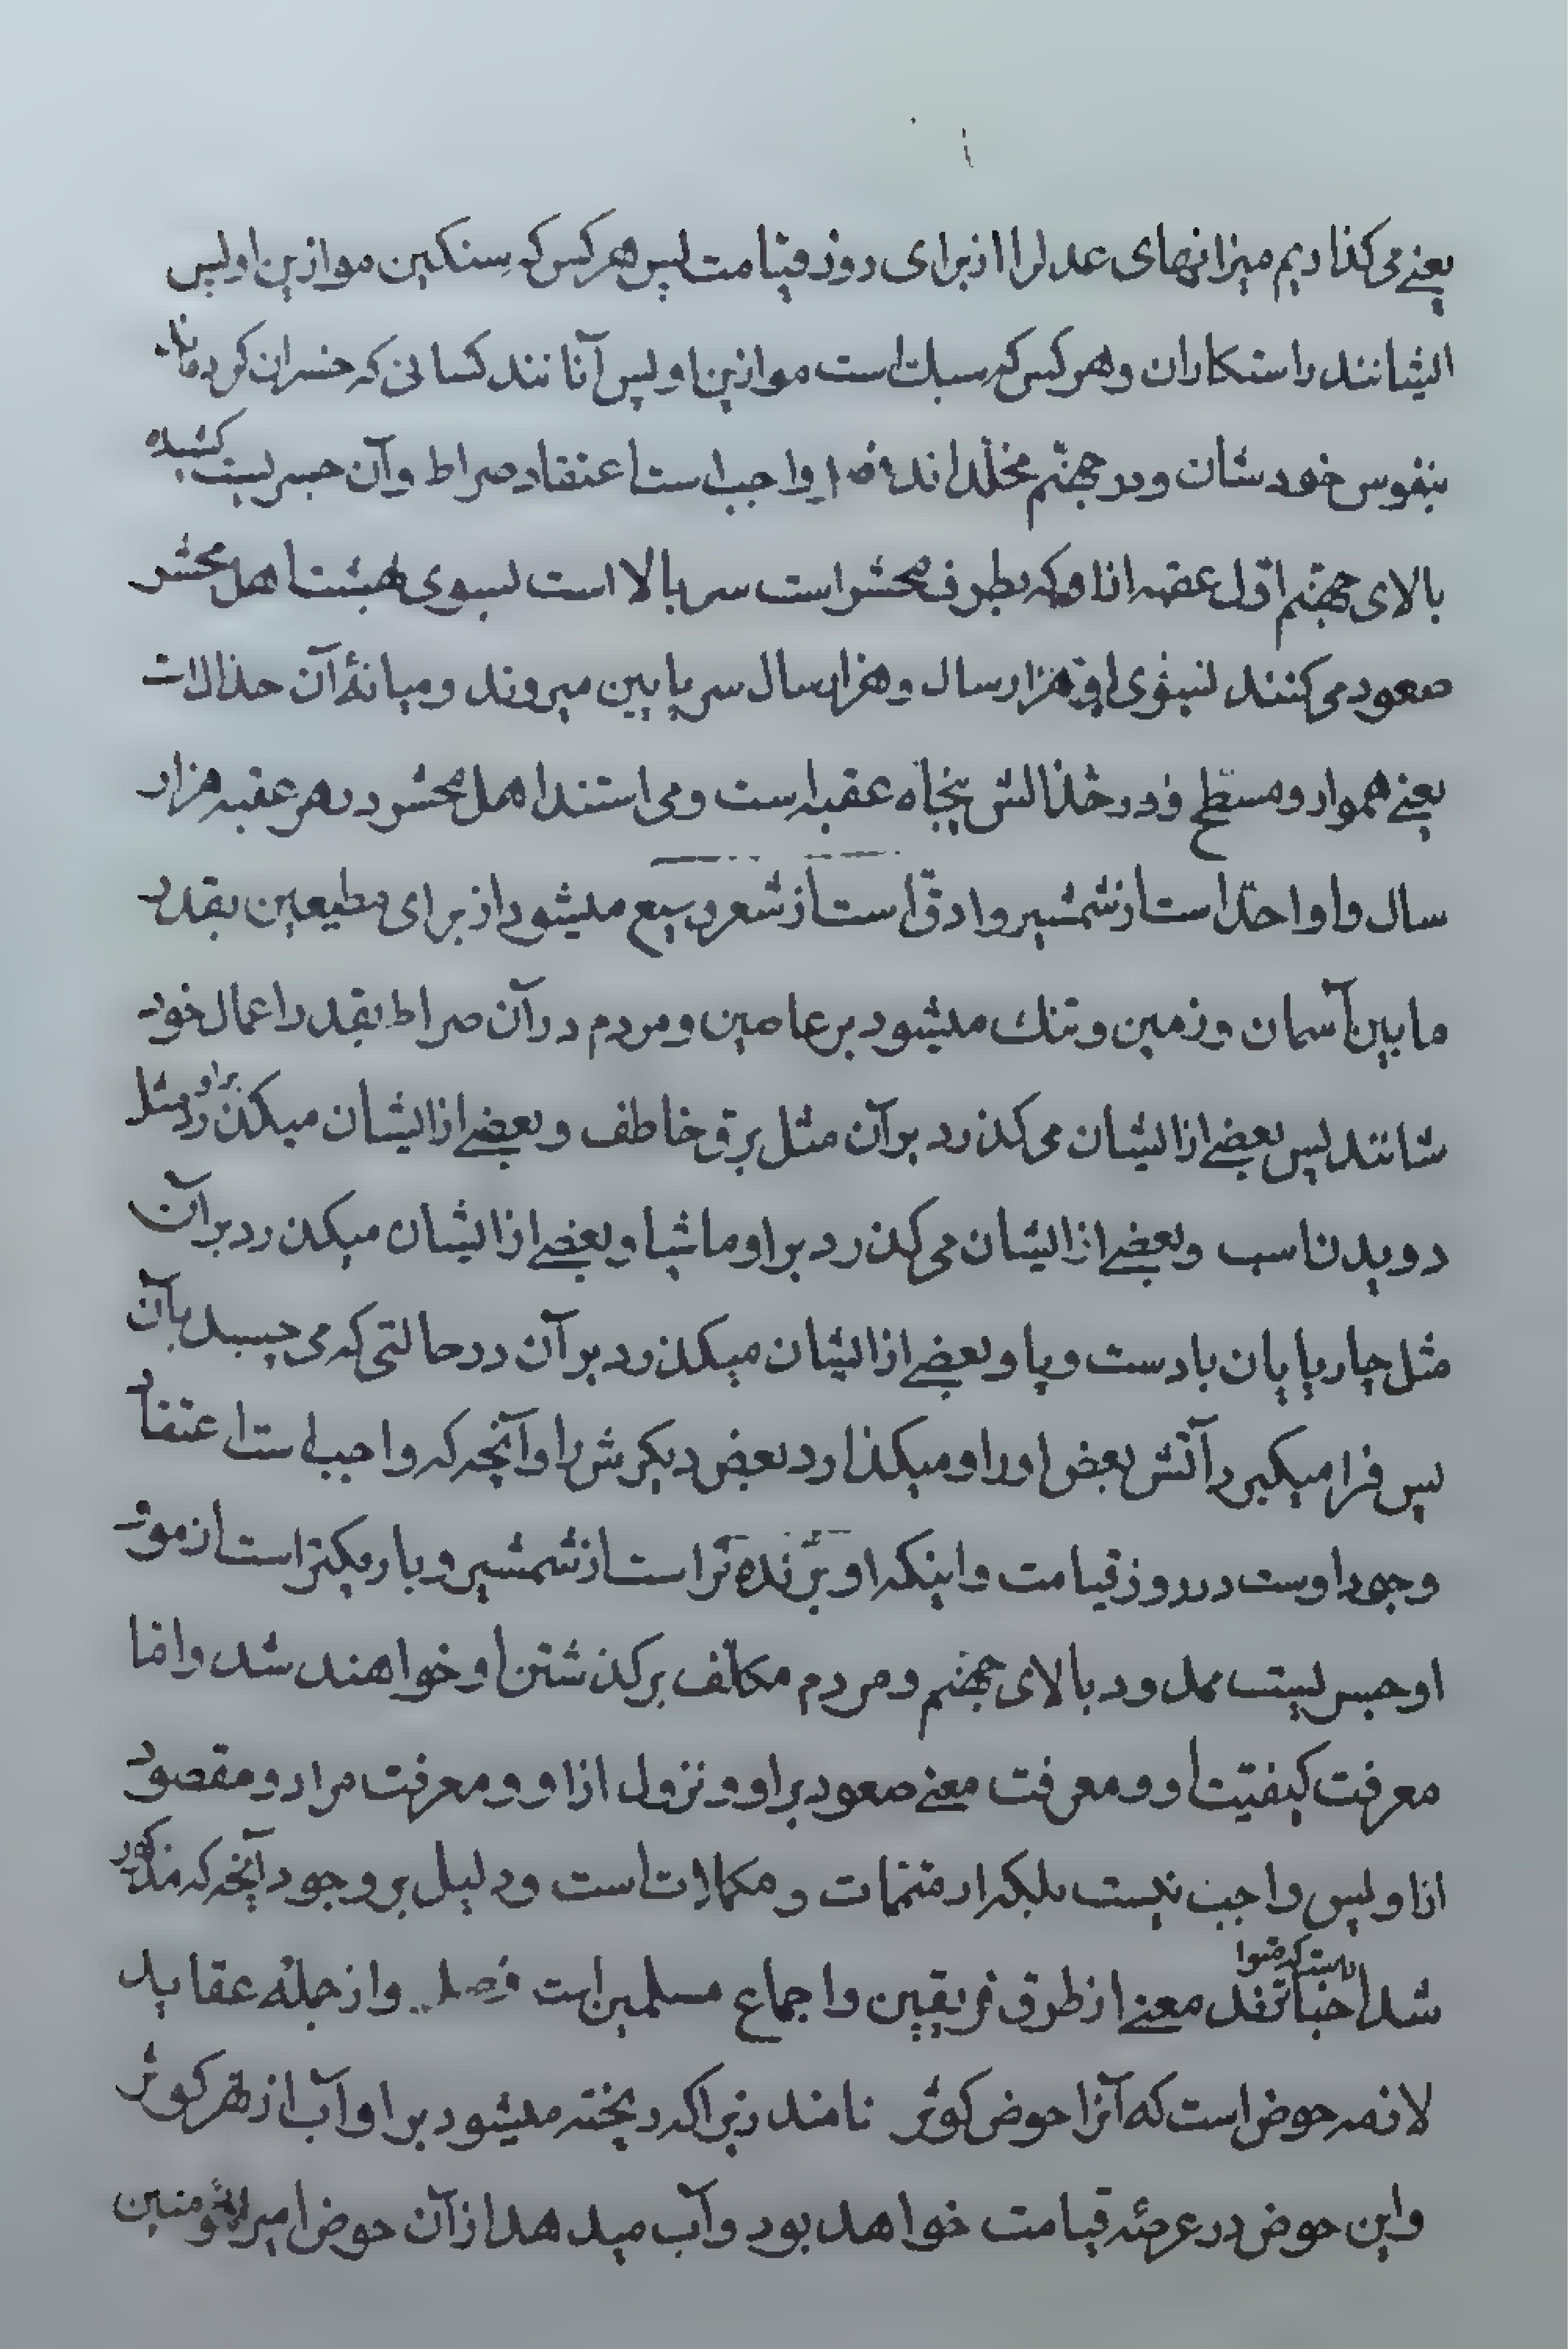 یعنے می کذاریم میزانهای عدل را از برای روز قیامت پس هر کس که سنکین موازین او پس
ایشانند راستکاران و هر کس که سبک است موازین او پس آنانند کسانی که خسران کرده‌اند
بنفوس خودشان و در جهنّم مخلّداند فصل واجب است اعتقاد صراط و آن جسریست کشیده
بالای جهنّم اوّل عقبه از او که بطرف محشر است سر بالا است بسوی بهشت اهل محشر
صعود می کنند بسوی او هزار سال و هزار سال سر پایین میروند و میانهٔ آن حذالات
یعنے هموار و مسطّح و در حذالش پنجاه عقبه است و می استند اهل محشر در هر عقبه هزار
سال و او احدّ است از شمشیر و ادقّ است از شعر وسیع میشود از برای مطیعین بقدر
ما بین آسمان و زمین و تنک میشود بر عاصین و مردم در آن صراط بقدر اعمال خود
شانند پس بعضے از ایشان می کذرد بر آن مثل برق خاطف و بعضے از ایشان میکذرد بر او مثل
دویدن اسب و بعضے از ایشان می کذرد بر او ماشیا و بعضے از ایشان میکذرد بر آن
مثل چارپایان با دست و پا و بعضے از ایشان میکذرد بر آن در حالتی که می چسبد بآن
پس فرا میکیرد آتش بعض او را و میکذارد بعض دیکرش را و آنچه که واجب است اعتقاد
وجود اوست در روز قیامت و اینکه او برّنده تر است از شمشیر و باریکتر است از مو و
او جسریست ممدود بالای جهنّم و مردم مکلّف بر کذشتن او خواهند شد و امّا
معرفت کیفیّت او و معرفت معنے صعود بر او و نزول از او و معرفت مراد و مقصود
از او پس واجب نیست بلکه از متمّمات و مکملات است و دلیل بر وجود آنچه که مذکور
شد اخباریست که متواترند معنے از طرق فریقین و اجماع مسلمین است فصل و از جملهٔ عقاید
لازمه حوض است که آنرا حوض کوثر نامند زیرا که ریخته میشود بر او آب از نهر کوثر
و این حوض در عرصهٔ قیامت خواهد بود و آب میدهد از آن حوض امیرالمؤمنین